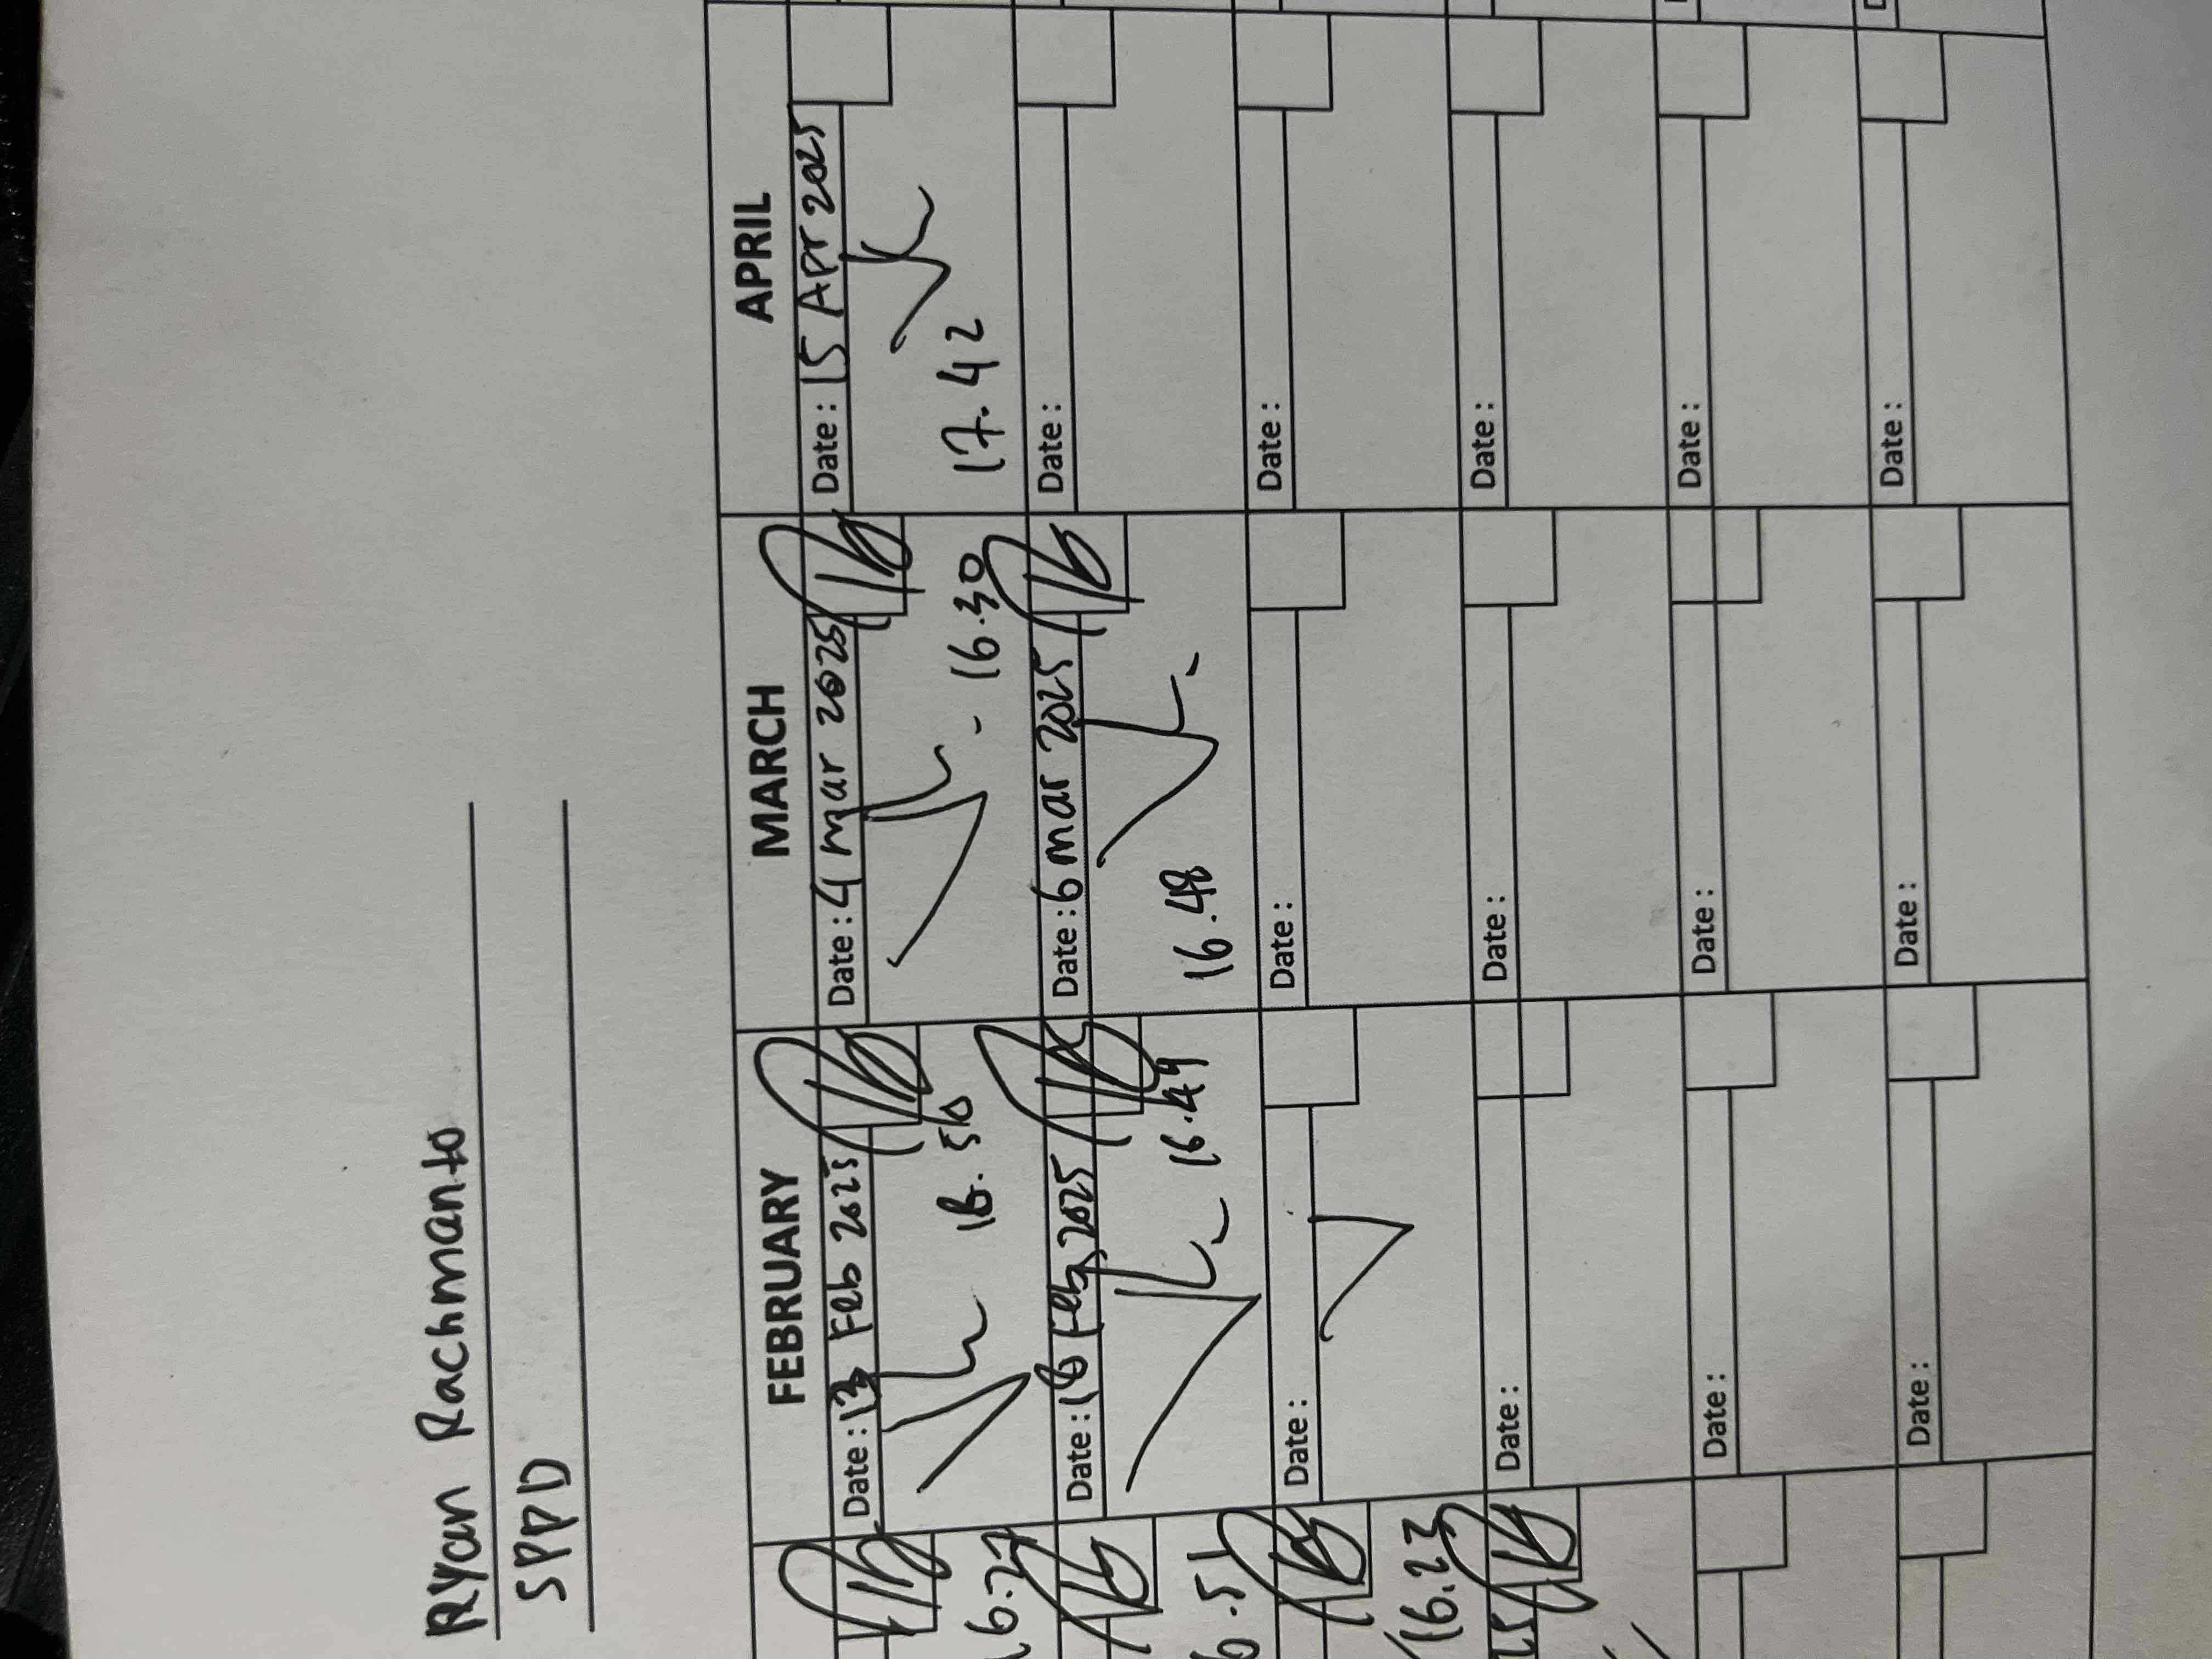 Ryan Rachmanto
SPPD
FEBRUARY MARCH APRIL
Date : 13 Feb 2025 Date : 4 mar 2025 Date : 15 Apr 2025
16.27 16.30 17.42
Date : Feb 2025 Date : 6 mar 2025 Date :
.51 16.49 16.48
Date : Date : Date :
16.23
25 Date : Date : Date :
Date : Date : Date :
Date : Date : Date :